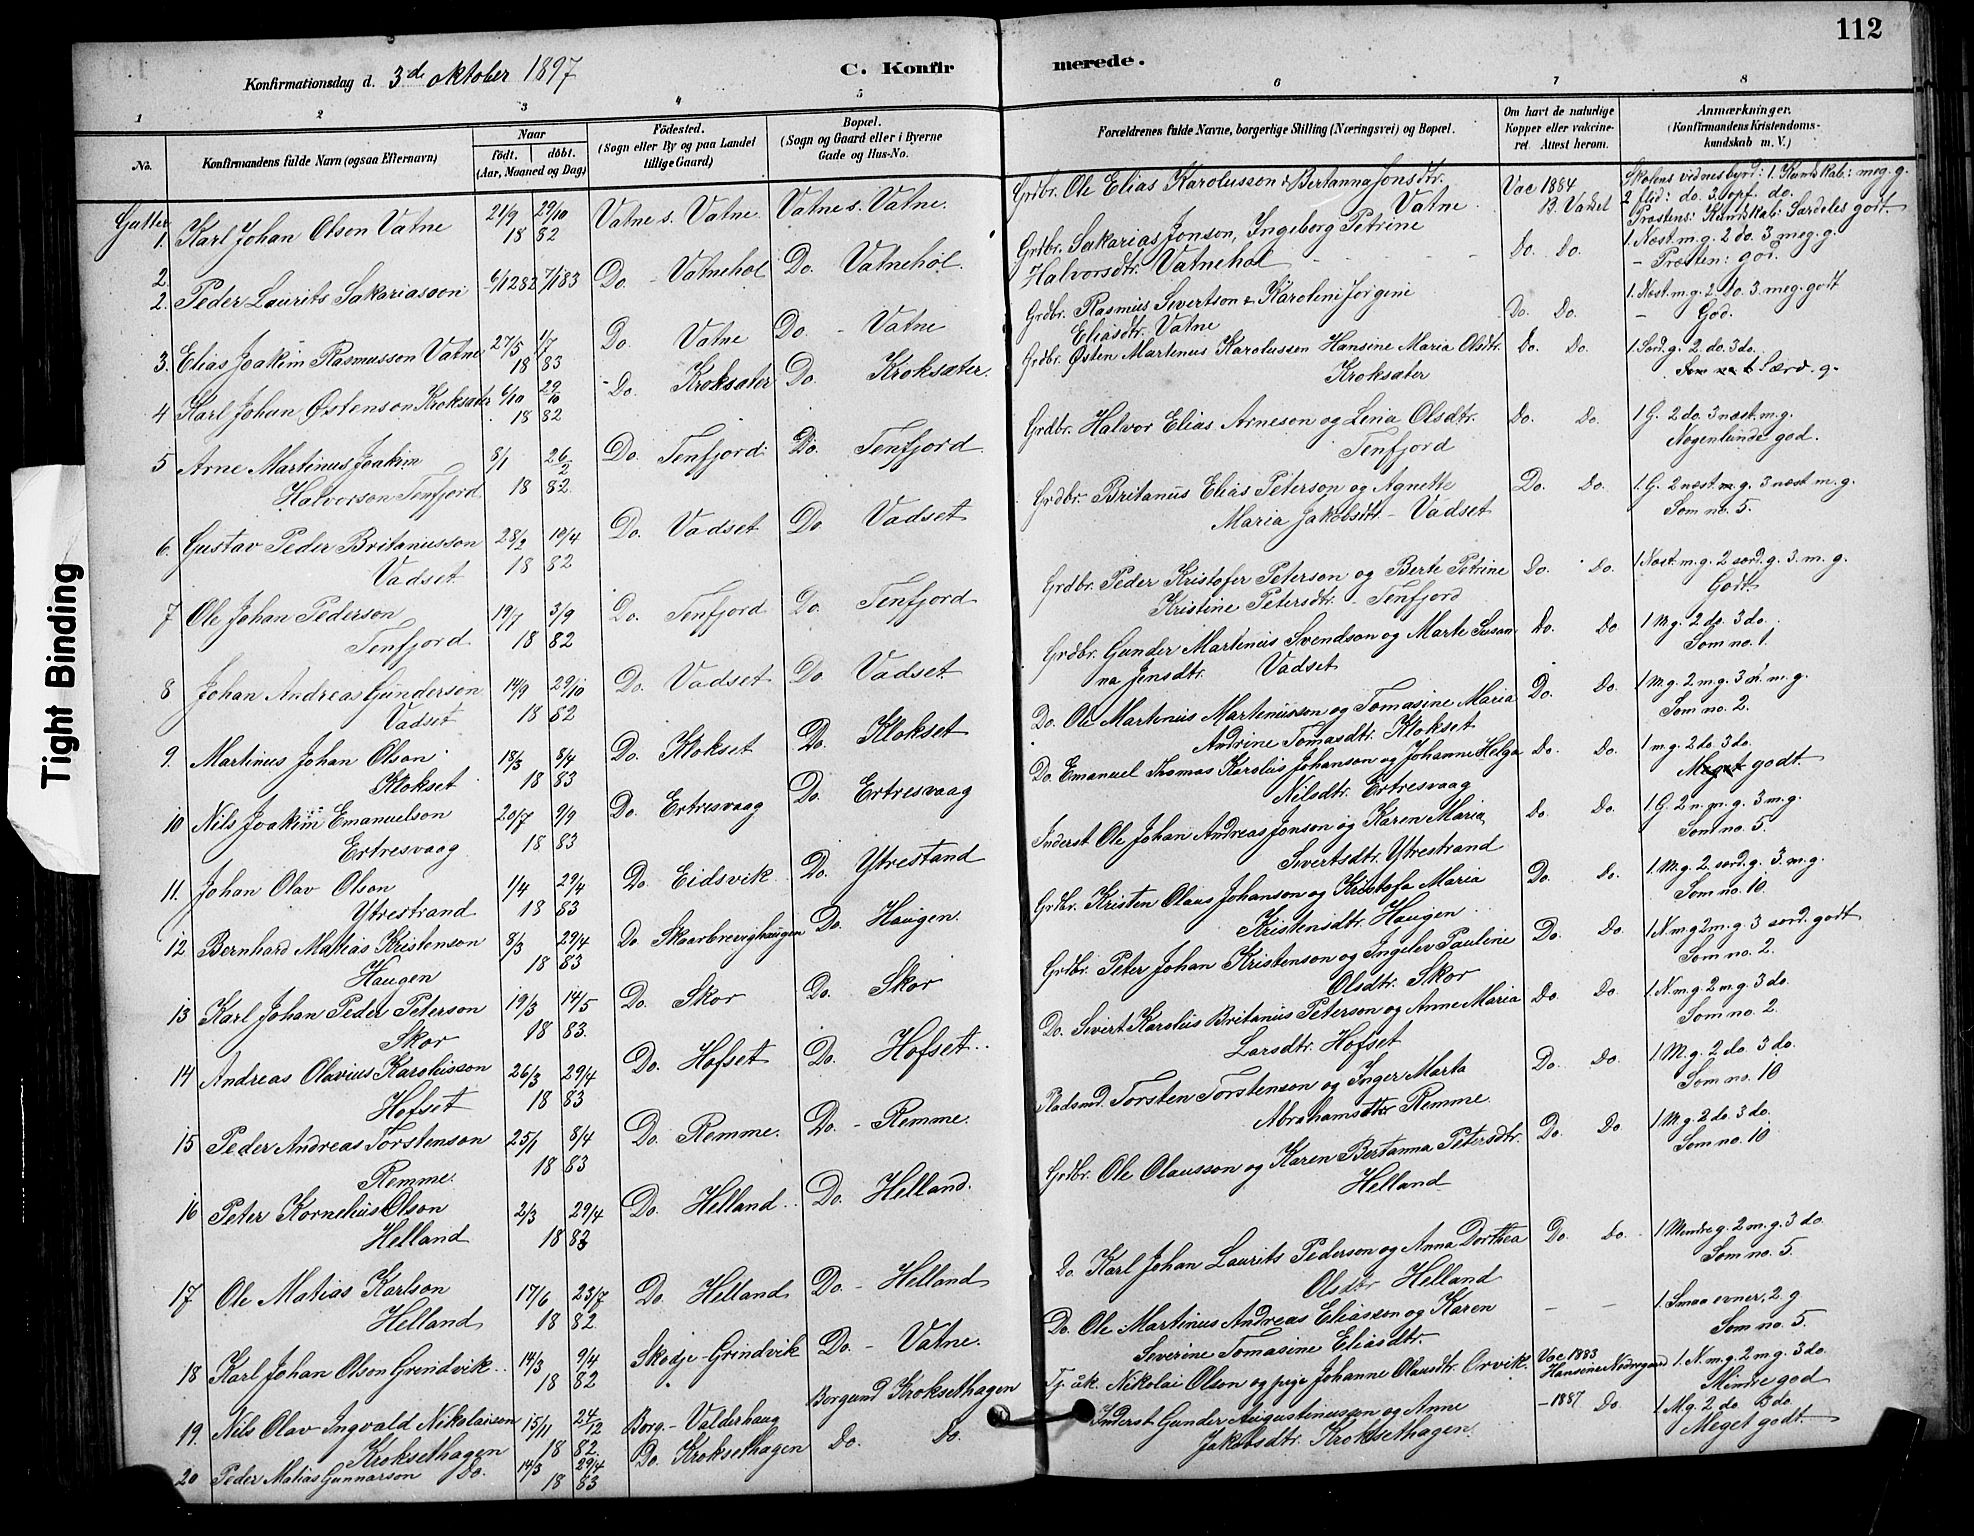 112
Konfirmationsdag d. 3d oktober 1897
C. Konfirmerede.
1 2 3 4 5 6 7 8
No. Konfirmandens fulde Navn (ogsaa Efternavn) Naar födt. döbt. (Aar, Maaned og Dag) Födested. (Sogn eller By og paa Landet tillige Gaard) Bopæl. (Sogn og Gaard eller i Byerne Gade og Hus-No. Forældrenes fulde Navne, borgerlige Stilling (Næringsvei) og Bopæl. Om havt de naturlige Kopper eller vakcineret. Attest herom. Anmærkninger. (Konfirmandens Kristendomskundskab m. V.)
Gutter
1. Karl Johan Olson Vatne 21/9 29/10 18 82 Vatne s. Vatne Vatne s. Vatne. Grdbr. Ole Elias Karolusson & Bertanna Jonsdtr. Vatne Vac 1884 B. Vadset Skolens vidnesbyrd: 1. Kundskab: meg. g. 2 flid: do. 3. opf. do. Præstens: Kundskab: Særdeles godt.
2. Peder Laurits Sakariasson 6/12 82 7/1 83 Do. - Vatnehol Do. Vatnehol. Grdbr. Sakarias Jonson, Ingeborg Petrine Halvorsdtr. Vatnehol Do. Do. 1. Næst. m. g. 2 do. 3 meg. g. - Præsten: god.
3. Elias Joakim Rasmusson Vatne 27/5 1/7 18 83 Do. Vatne Do. - Vatne Grdbr. Rasmus Severtson & Karoleni Jorgine Eliasdtr. Vatne Do. Do. 1. Næst. m. g. 2. Do. 3. meg. godt - God.
4 Karl Johan Østenson Kroksæter 6/10 29/10 18 82 Do. Kroksæter Do. Kroksæter. Grdbr. Østen Martinus Karolussen Hansine Maria Olsdtr. Kroksæter Do. Do. 1. Særd. g. 2. do. 3 do. Særd. g.
5 Arne Martinus Joakim Halvorson Tenfjord 8/1 26/2 18 82 Do. Tenfjord Do. Tenfjord. Grdbr. Halvor Elias Arneson og Lena Olsdtr. Tenfjord Do. Do. 1 G. 2 do. 3 næst. m. g. Nogenlunde god.
6. Gustav Peder Britanusson Vadset 28/2 10/4 18 82 Do. Vadset Do Vadset Grdbr. Britanus Elias Peterson og Agnette Maria Jakobsdtr - Vadset Do. Do. 1. G. 2 næst. m. g. 3 næst m. g. Som no. 5.
7 Ole Johan Pederson Tenfjord 19/7 3/9 18 82 Do. Tenfjord Do Tenfjord Grdbr. Peder Kristofer Peterson og Berte Petrine Kristine Petersdtr. - Tenfjord Do. Do. 1 Næst. m. g. 2 særd. g. 3. m. g. Godt
8 Johan Andreas Gunderson Vadset 14/9 29/10 18 82 Do. Vadset Do Vadset Grdbr. Gunder Martinus Svendson og Marte Susanna Jensdtr. Vadset Do. Do 1 M. g. 2 do. 3 do. Som no. 1.
9. Martinus Johan Olson Klokset 18/3 8/4 18 83 Do. Klokset Do. Klokset Do. Ole Martinus Martinusson og Tomasine Maria Andrine Tomasdtr. Klokset Do. Do. 1 M. g. 2 m. g. 3 n. m. g. Som no. 2.
10 Nils Joakim Emanuelson Ertresvaag 20/7 9/9 18 83 Do Ertresvaag Do. Ertresvaag Do. Emanuel Thomas Karolus Johanson og Johanne Helga Nilsdtr. Ertresvaag Do. Do. 1 m. g. 2 do. 3 do. Meget godt.
11. Johan Olav Olson Ytrestrand 1/4 29/4 18 83 Do Eidsvik Do. Ytrestand Inderst Ole Johan Andreas Jonson og Karen Maria Sivertsdtr. Ytrestrand Do Do. 1. G. 2 n. m. g. 3 m. g. Som no. 5.
12 Bernhard Matias Kristenson Haugen 8/3 29/4 18 83 Do Skaarbrevighaugen Do. Haugen. Grdbr. Kristen Olaus Johanson og Kristofa Maria Kristensdtr. Haugen Do. Do. 1. M. g. 2 særd. g. 3. m. g. Som no. 10
13 Karl Johan Peder Peterson Skor 19/3 14/5 18 83. Do. Skor Do. Skor Grdbr. Peter Johan Kristenson og Ingelev Pauline Olsdtr. Skor Do. Do. 1 N. m. g. 2 m. g. 3 særd. godt Som no. 2.
14 Andreas Olavius Karolusson Hofset 26/3 29/4 18 83 Do. Hofset Do. Hofset. Do. Sivert Karolus Britanus Peterson og Anne Maria Larsdtr. Hofset Do Do. 1. N. m. g. 2 m. g. 3 do. Som no. 2.
15 Peder Andreas Torstenson Remme. 25/1 8/4 18 83 Do. Remme. Do. - Remme. Pladsmd. Torsten Torstenson og Inger Marta Abrahamsdtr Remme Do. Do. 1. M. g. 2 do. 3 do. Som no. 10
16 Peter Kornelius Olson Helland 2/3 29/4 18 83 Do. Helland. Do. Helland. Grdbr. Ole Olausson og Karen Bertanna Petersdtr. Helland Do. Do. 1. M. g. 2 do. 3 do. Som no. 10
17 Ole Matias Karlson Helland 17/6 23/7 18 82 Do. Helland Do. - Helland Do. Karl Johan Laurits Pederson og Anna Dorthea Olsdtr Helland Do. Do. 1 Mindre g. 2 m. g. 3 do. Som no. 5.
18 Karl Johan Olson Grindvik. 14/3 9/4 18 82 Skodje - Grindvik Do. - Vatne. Do. Ole Martinus Andreas Eliasson og Karen Severine Tomasine Eliasdtr. - - 1. Smaa evner, 2 g. Som no. 5.
19. Nils Olav Ingvald Nikolaison Kroksethagen 15/11 24/12 18 82. Borg. - Valderhaug Borgund Kroksethagen Tj. uk. Nikolai Olson og pige Johanne Olausdtr. Orvik. Vac 1883 Hansine Nörregaard 1. N. m. g. 2 m. g. 3 do. Mindre god
20 Peder Matias Gunnarson Do. 14/3 29/4 18 83 Do. Kroksethagen Do. Do. Inderst Gunder Augustinusson og Anne Jakobsdtr. Kroksethagen. - 1887 Do. 1 M. g. 2 do. 3 do. Meget godt.
Tight Binding